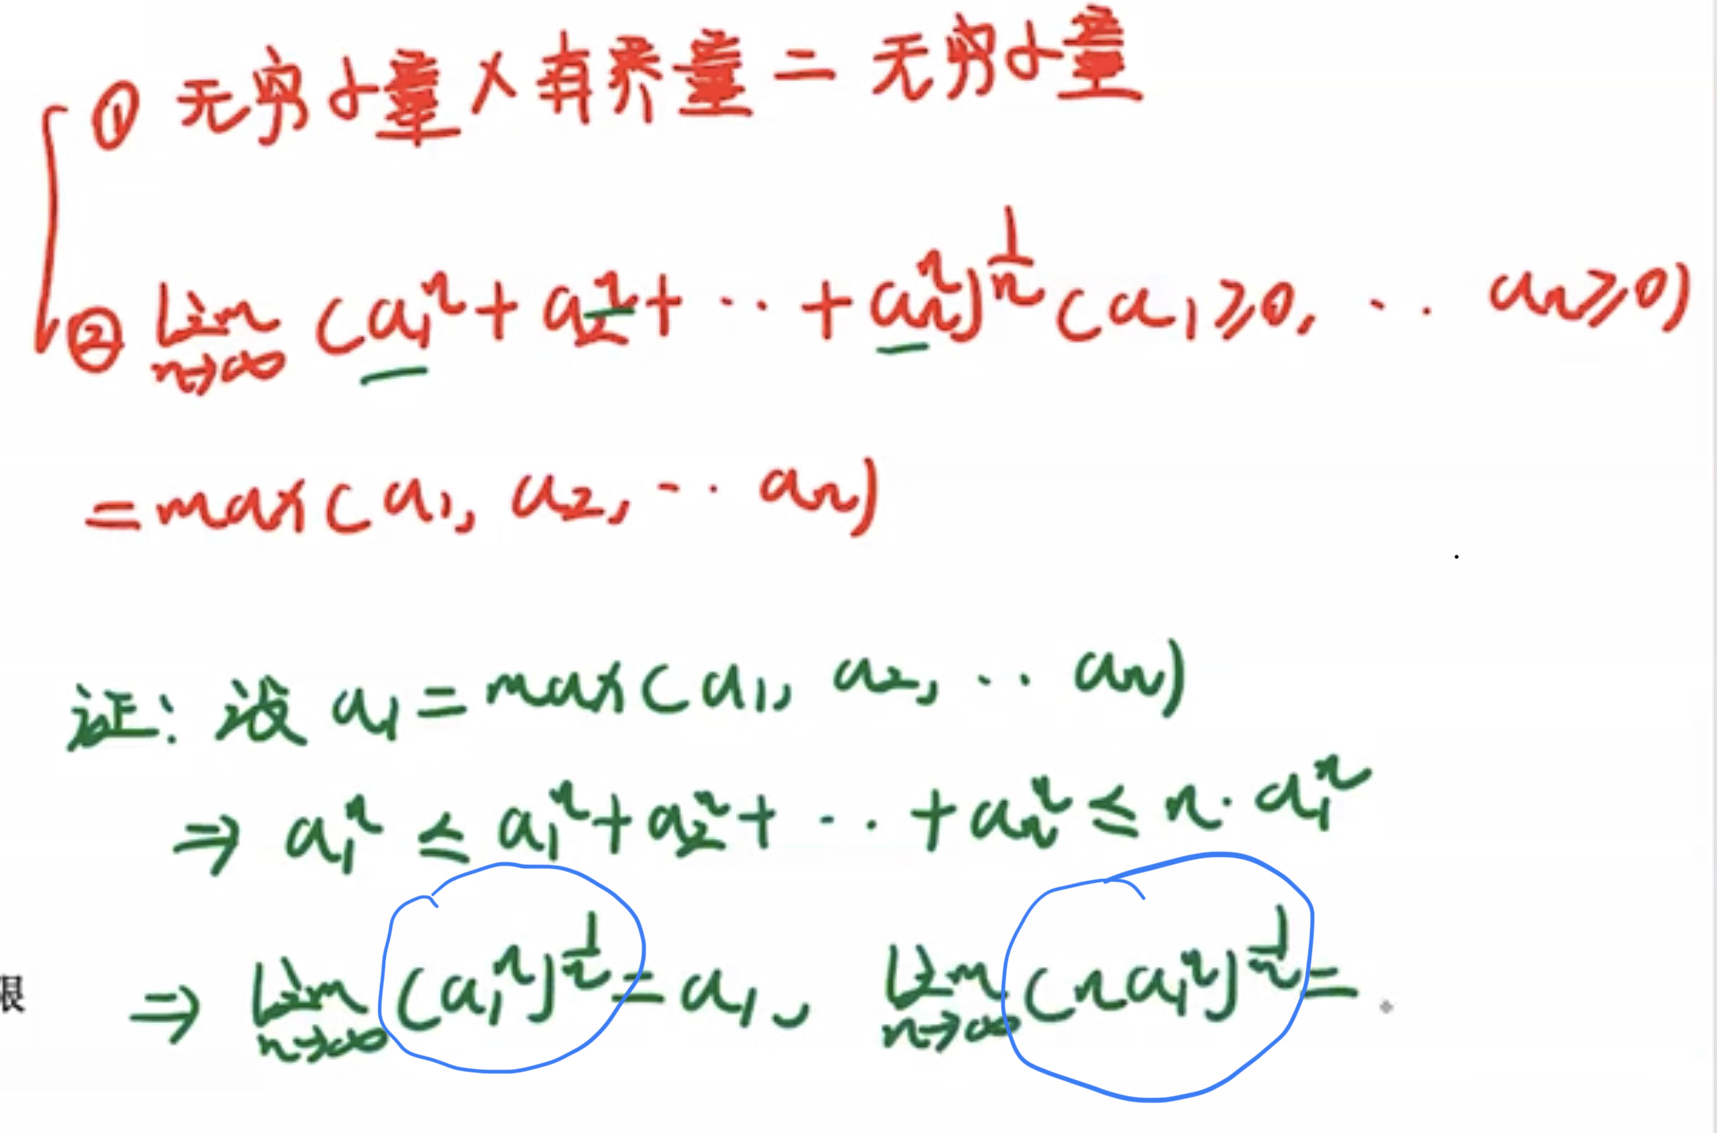 ① 无穷小量×有界量=无穷小量
② lim n→∞ (a₁ⁿ+a₂ⁿ+··+aₙⁿ)^(1/n) (a₁≥0, ·· aₙ≥0)
=max(a₁, a₂, ·· aₙ)
证: 设 a₁=max(a₁, a₂, ·· aₙ)
⇒ a₁ⁿ ≤ a₁ⁿ+a₂ⁿ+ ·· +aₙⁿ ≤ n·a₁ⁿ
限
⇒ lim n→∞ (a₁ⁿ)^(1/n) = a₁, lim n→∞ (na₁ⁿ)^(1/n) =